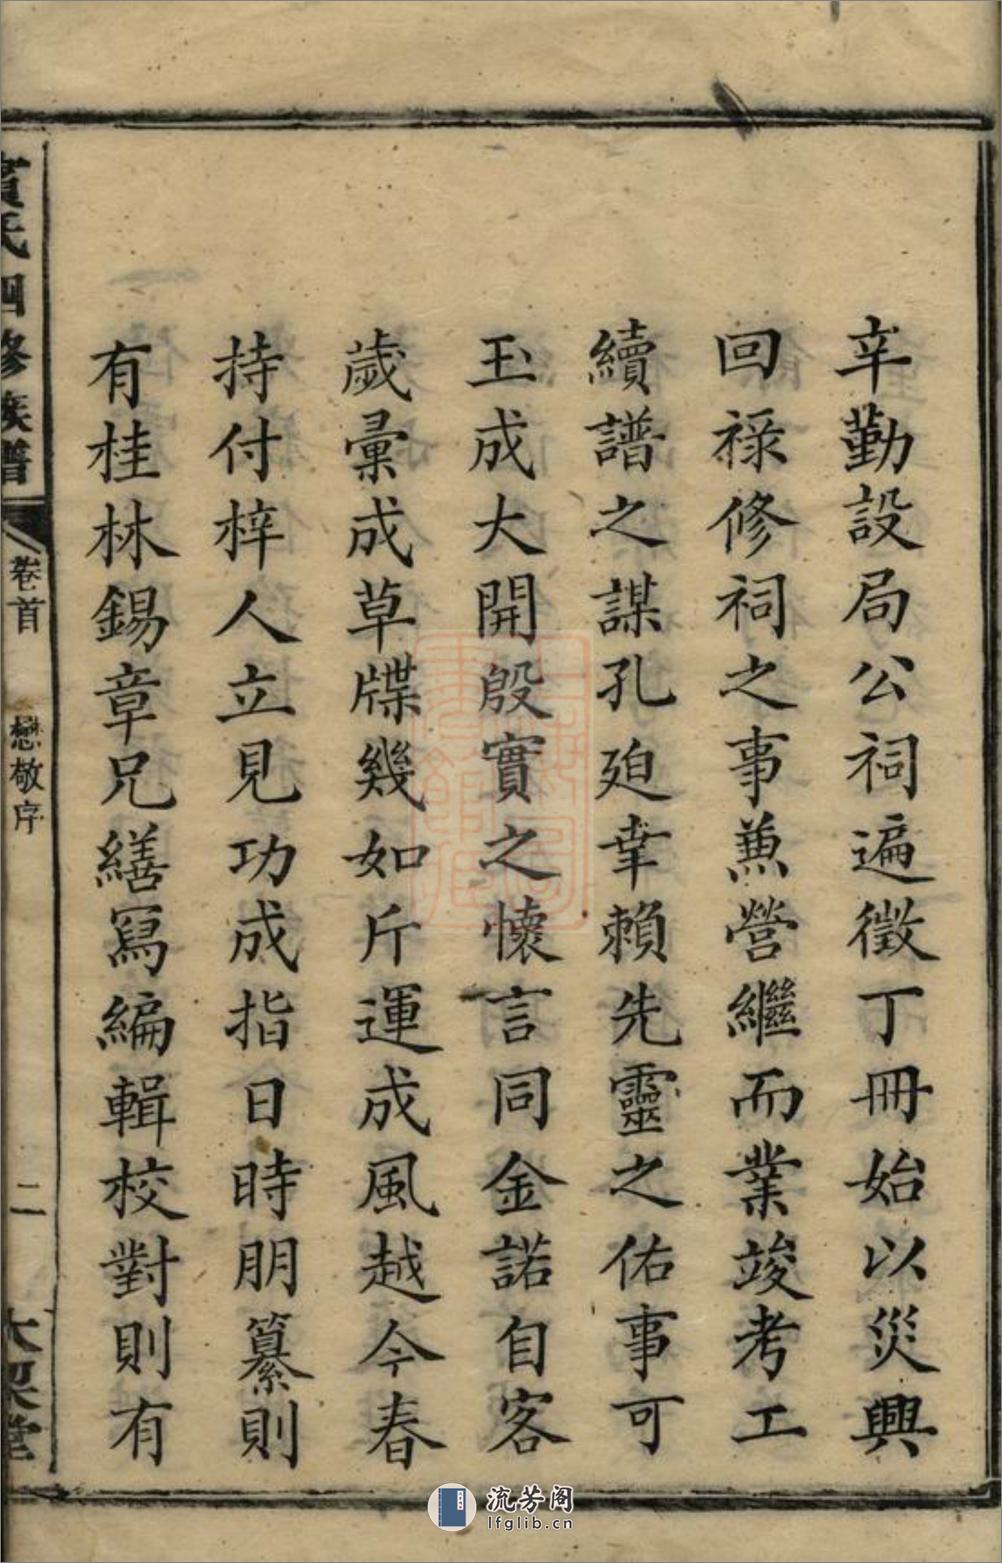 辛勤設局公祠遍徵丁冊始以災興
回祿修祠之事兼營繼而業竣考工
續譜之謀孔廹幸賴先靈之佑事可
玉成大開殷實之懷言同金諾自客
歲彙成草牒幾如斤運成風越今春
持付梓人立見功成指日時朋纂則
有桂林錫章兄繕寫編輯校對則有
氏四修族譜
卷首
懋敬序
二
大 堂
流芳阁
lfglib.cn